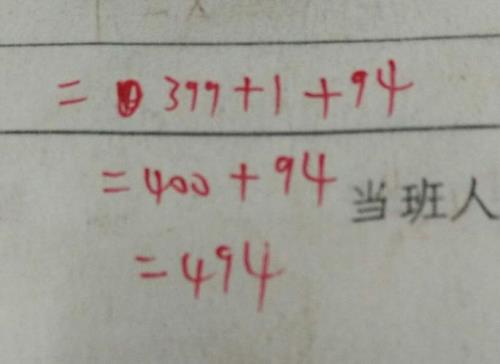 = 399+1+94
=400+94
当班人
=494